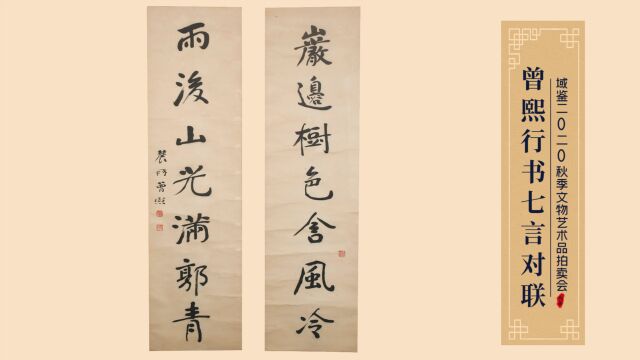 域鉴二〇二〇秋季文物艺术品拍卖会
曾熙行书七言对联
巖邊樹色含風冷
雨後山光滿郭青
農髯曾熙